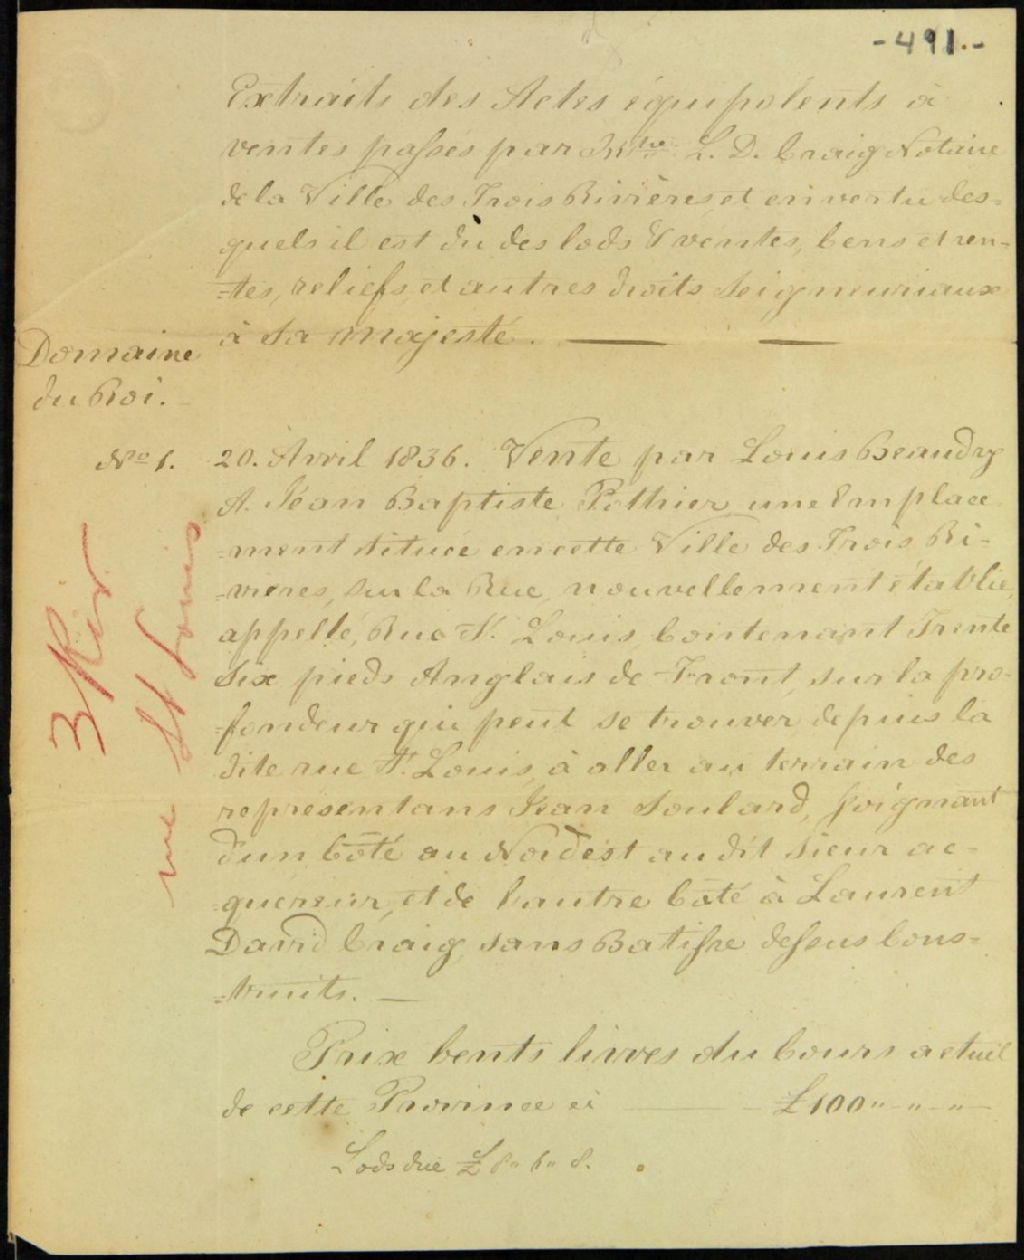 -491.-
Extraits des Actes équipolents à
ventes passés par Mtre L. D. Craig Notaire
de la Ville des Trois Rivières et en vertu des-
quels il est dû des lods & ventes, Cens et ren-
=tes, reliefs, et autres droits Seigneuriaux
à Sa Majesté.
Domaine
du Roi.
No 1.
20. Avril 1836. Vente par Louis Beaudry
A. Jean Baptiste Pothier une Emplace
=ment située en cette Ville des Trois Ri-
=vieres, sur la Rue, nouvellement établie,
appellé, Rue St. Louis, Contenant Trente
Six pieds Anglais de Front, sur la pro-
=fondeur qui peut se trouver depuis la
dite rue St. Louis, à aller au terrain des
representans Jean Soulard, Joignant
d'un Côté au Nordest au dit Sieur ac-
=quereur, et de l'autre Côté à Laurent
David Craig, sans Batisse dessus Cons-
=truits.
Prix Cents livres du Cours actuel
de cette Province ci £100 " - " - "
Lods due £ 8 " 6 " 8.
3 Riv
rue St Louis